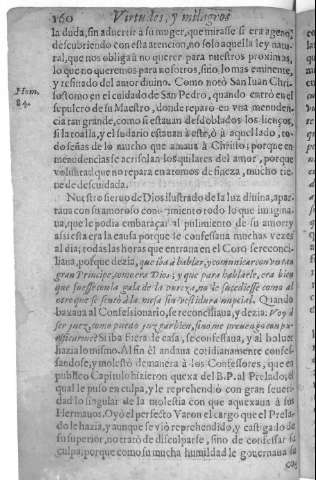 160 Virtudes, y milagros
la duda, sin aduertir a su muger, que mirasse si era ageno,
descubriendo con esta atencion, no solo aquella ley natu-
ral, que nos obliga à no querer para nuestros proximos,
lo que no queremos para nosotros, sino lo mas eminente,
y refinado del amor diuino. Como notó San Juan Chri-
Hom.
84.
sostomo en el cuidado de San Pedro, quando entrò en el
sepulcro de su Maestro, donde reparo en vna menuden-
cia tan grande, como si estauan desdoblados los lienços,
si la toalla, y el sudario estauan à este, ò à aquel lado, to-
do señas de lo mucho que amaua à Christo; porque en
menudencias se acrisolan los quilates del amor, porque
voluntad que no repara en atomos de fineza, mucho tie-
ne de descuidada.
Nuestro sieruo de Dios ilustrado de la luz diuina, apar-
taua con su amoroso conocimiento todo lo que imagina-
ua, que le podia embaraçar al pulimento de su amor: y
assi esta era la causa porque se confessaua muchas vezes
al dia; todas las horas que entraua en el Coro se reconci-
liaua, porque dezia, que iba à hablar, y comunicar con tan
gran Principe, como era Dios; y que para hablarle, era bien
que fuesse con la gala de la pureza, no le sucediesse como al
otro que se sentò à la mesa sin vestidura nupcial. Quando
baxaua al Confessionario, se reconciliaua, y dezia: Voy à
ser juez, como puedo juzgar bien, sino me preuengo con pu-
rificarme? Si iba fuera de casa, se confessaua, y al boluer
hazia lo mismo. Al fin èl andaua cotidianamente confes-
sandose, y molestò de manera à los Confessores, que en
publico Capitulo hizieron quexa del B.P. al Prelado, el
qual le puso en culpa, y le reprehendiò con gran seueri-
dad lo singular de la molestia con que aquexaua à sus
Hermanos. Oyò el perfecto Varon el cargo que el Prela-
do le hazia, y aunque se viò reprehendido, y castigado de
su superior, no tratò de disculparse, sino de confessar su
culpa, porque como su mucha humildad le gouernaua su